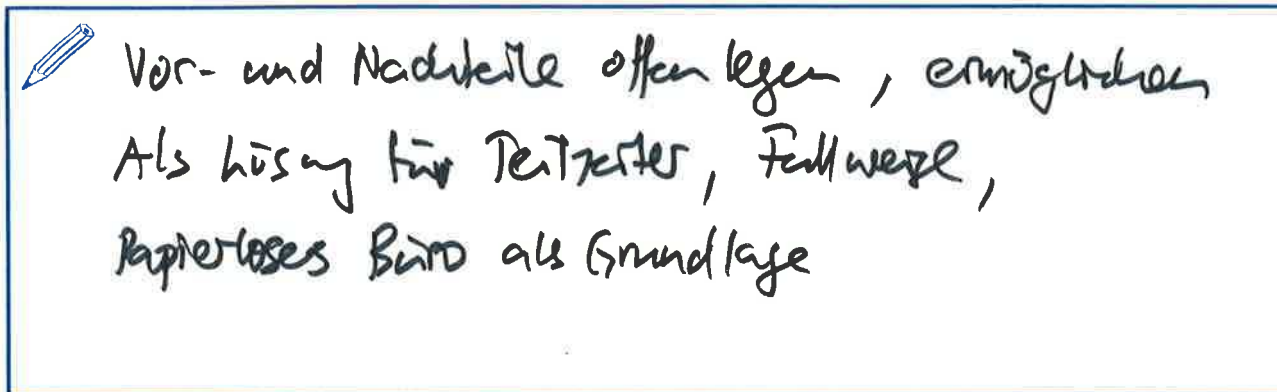 Vor- und Nachteile offen legen, ermöglichen
Als Lösung für Teilzeiter, Fallweise,
Papierloses Büro als Grundlage